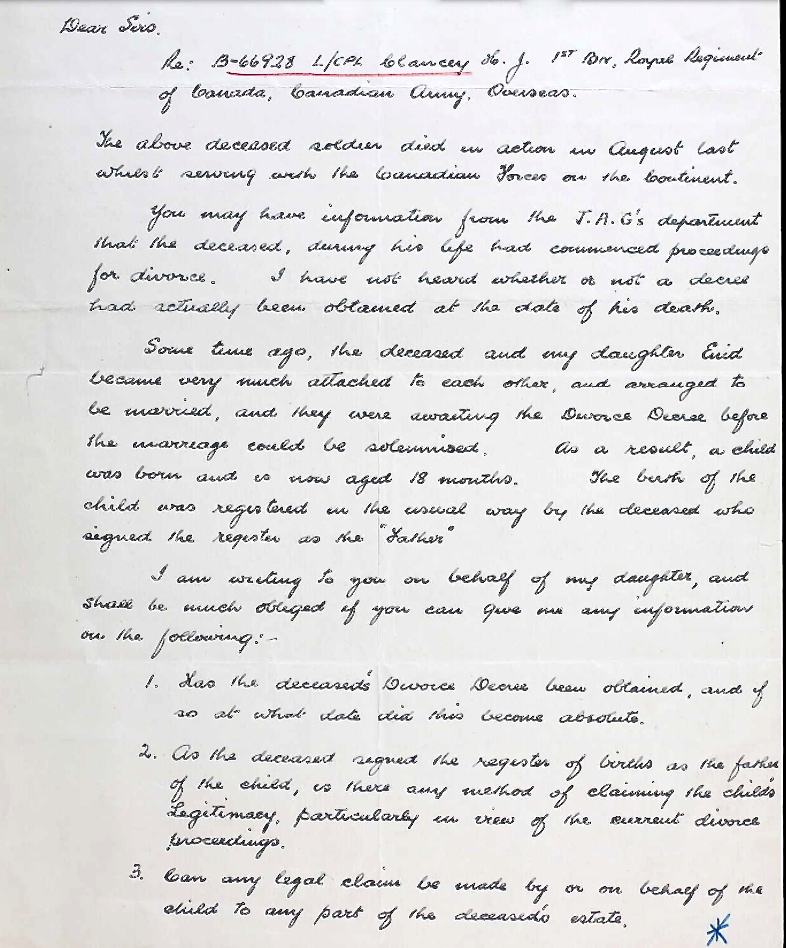 Dear Sirs.
Re: B-66928 L/CPL Clancey H. J. 1ST BN, Royal Regiment
of Canada, Canadian Army, Overseas.
The above deceased soldier died in action in August last
whilst serving with the Canadian Forces on the Continent.
You may have information from the J.A.G's department
that the deceased, during his life had commenced proceedings
for divorce. I have not heard whether or not a decree
had actually been obtained at the date of his death.
Some time ago, the deceased and my daughter Enid
became very much attached to each other, and arranged to
be married, and they were awaiting the Divorce Decree before
the marriage could be solemnised. As a result, a child
was born and is now aged 18 months. The birth of the
child was registered in the usual way by the deceased who
signed the register as the "Father"
I am writing to you on behalf of my daughter, and
shall be much obliged if you can give me any information
on the following:-
1. Has the deceased's Divorce Decree been obtained, and if
so at what date did this become absolute.
2. As the deceased signed the register of births as the father
of the child, is there any method of claiming the child's
Legitimacy, particularly in view of the current divorce
proceedings.
3. Can any legal claim be made by or on behalf of the
child to any part of the deceased's estate.
*